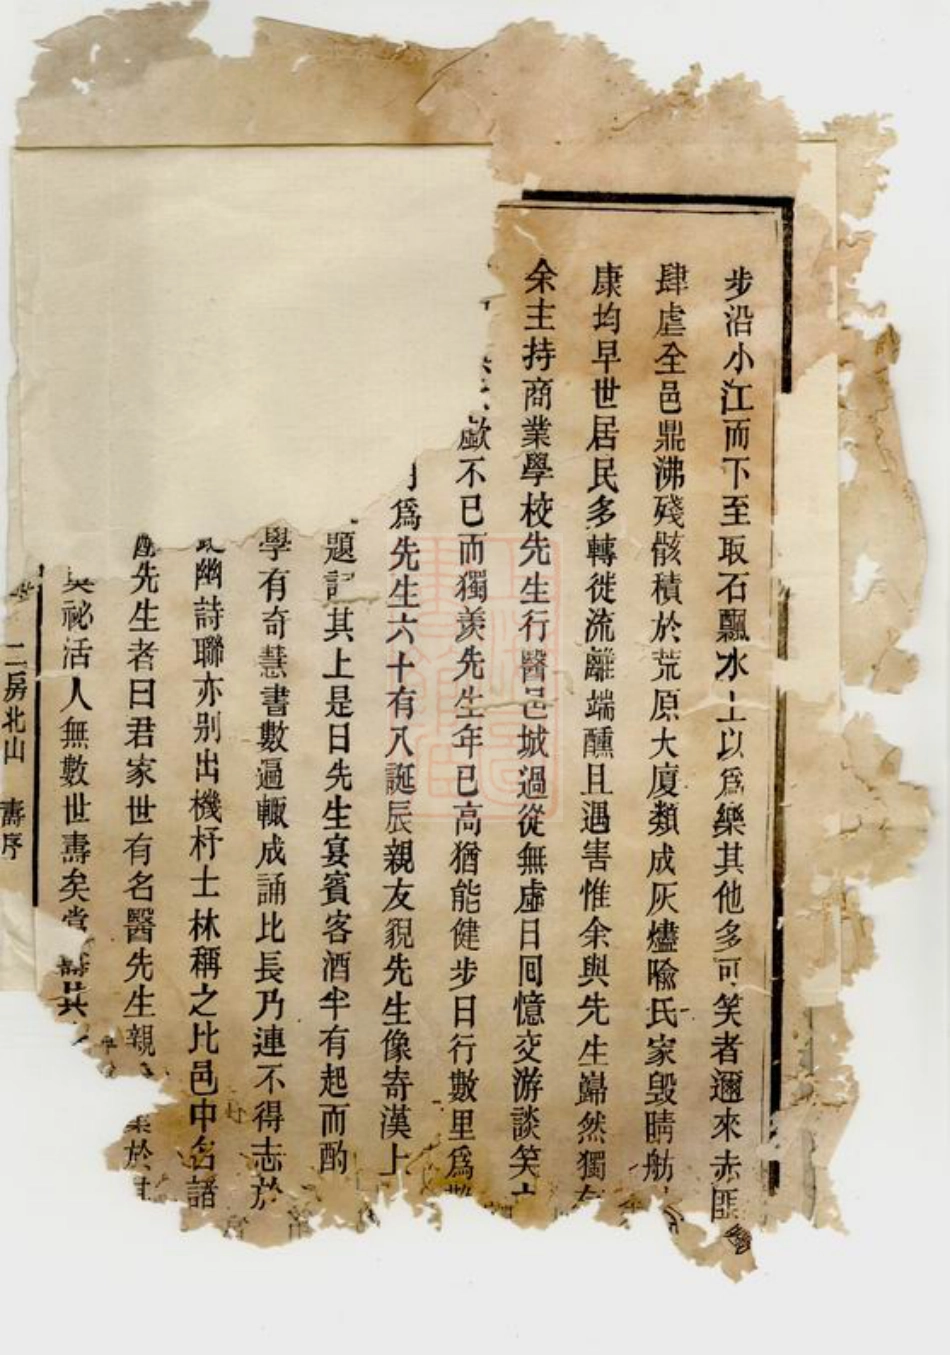 步沿小江而下至取石飄水上以爲樂其他多可笑者邇來赤匪
肆虐全邑鼎沸殘骸積於荒原大廈類成灰燼喩氏家毁睛舫
康均早世居民多轉徙流離端醺且遇害惟余與先生巋然獨
余主持商業學校先生行醫邑城過從無虛日回憶交游談笑
歔不已而獨羡先生年已高猶能健步日行數里爲
爲先生六十有八誕辰親友貌先生像寄漢上
題記其上是日先生宴賓客酒半有起而酌
學有奇慧書數過輒成誦比長乃連不得志於
幽詩聯亦别出機杼士林稱之比邑中名諸
先生者曰君家世有名醫先生親
於
祕活人無數世壽矣
其
二房北山 壽序